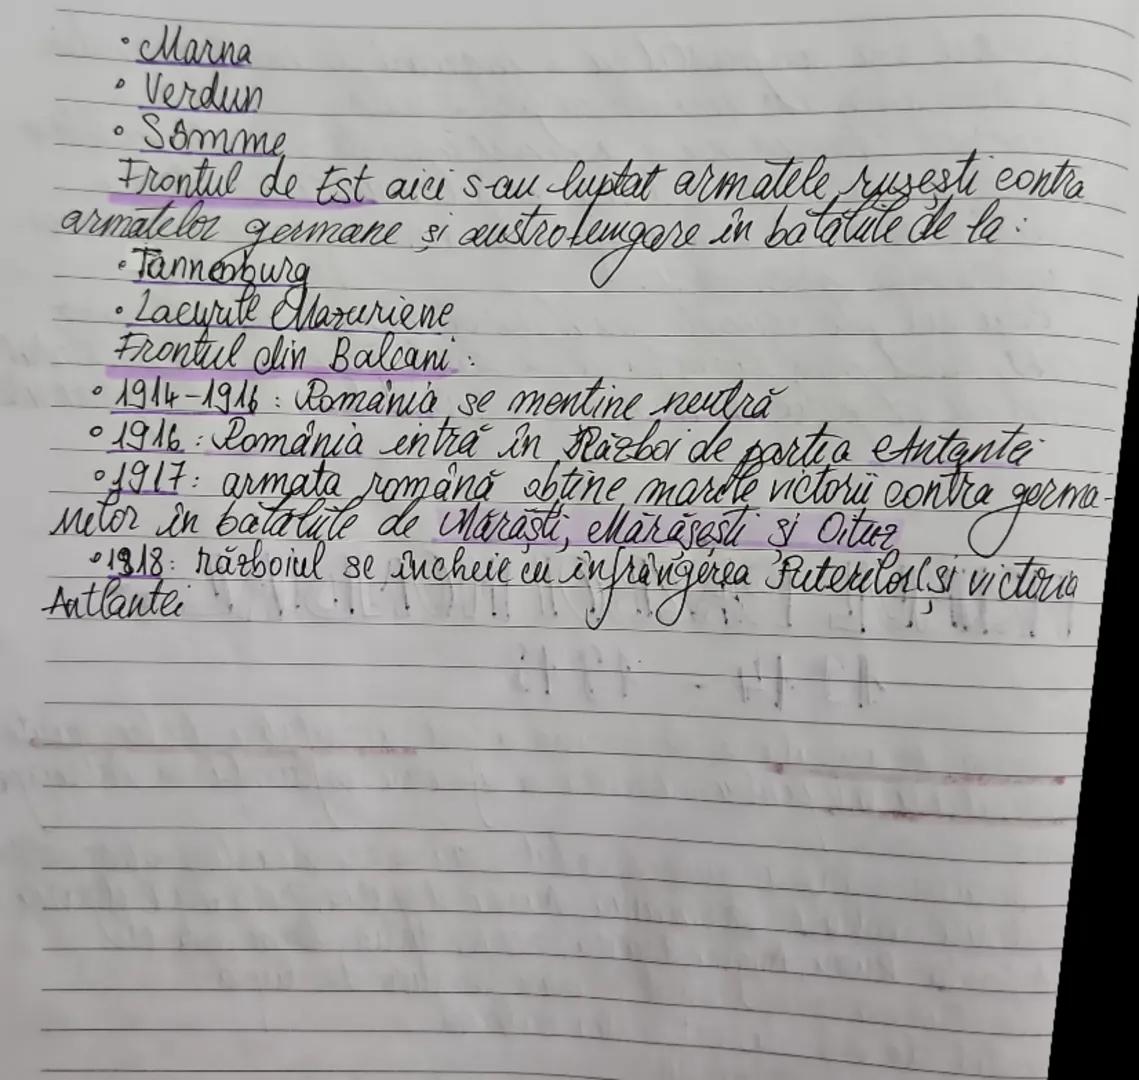 • Marna
• Verdun
• Somme
Frontul de Est aici s-au luptat armatele rusești contra
armatelor germane și austroungare în bătăliile de la:
• Tannenburg
• Lacurile Mazuriene
Frontul din Balcani:
• 1914-1916: România se mentine neutră
• 1916: România intră în Război de partea Antantei
• 1917: armata română obține marile victorii contra germa-
nilor în bătăliile de Mărăști, Mărășești și Oituz
• 1918: războiul se încheie cu înfrângerea Puterilor( și victoria
Antlantei